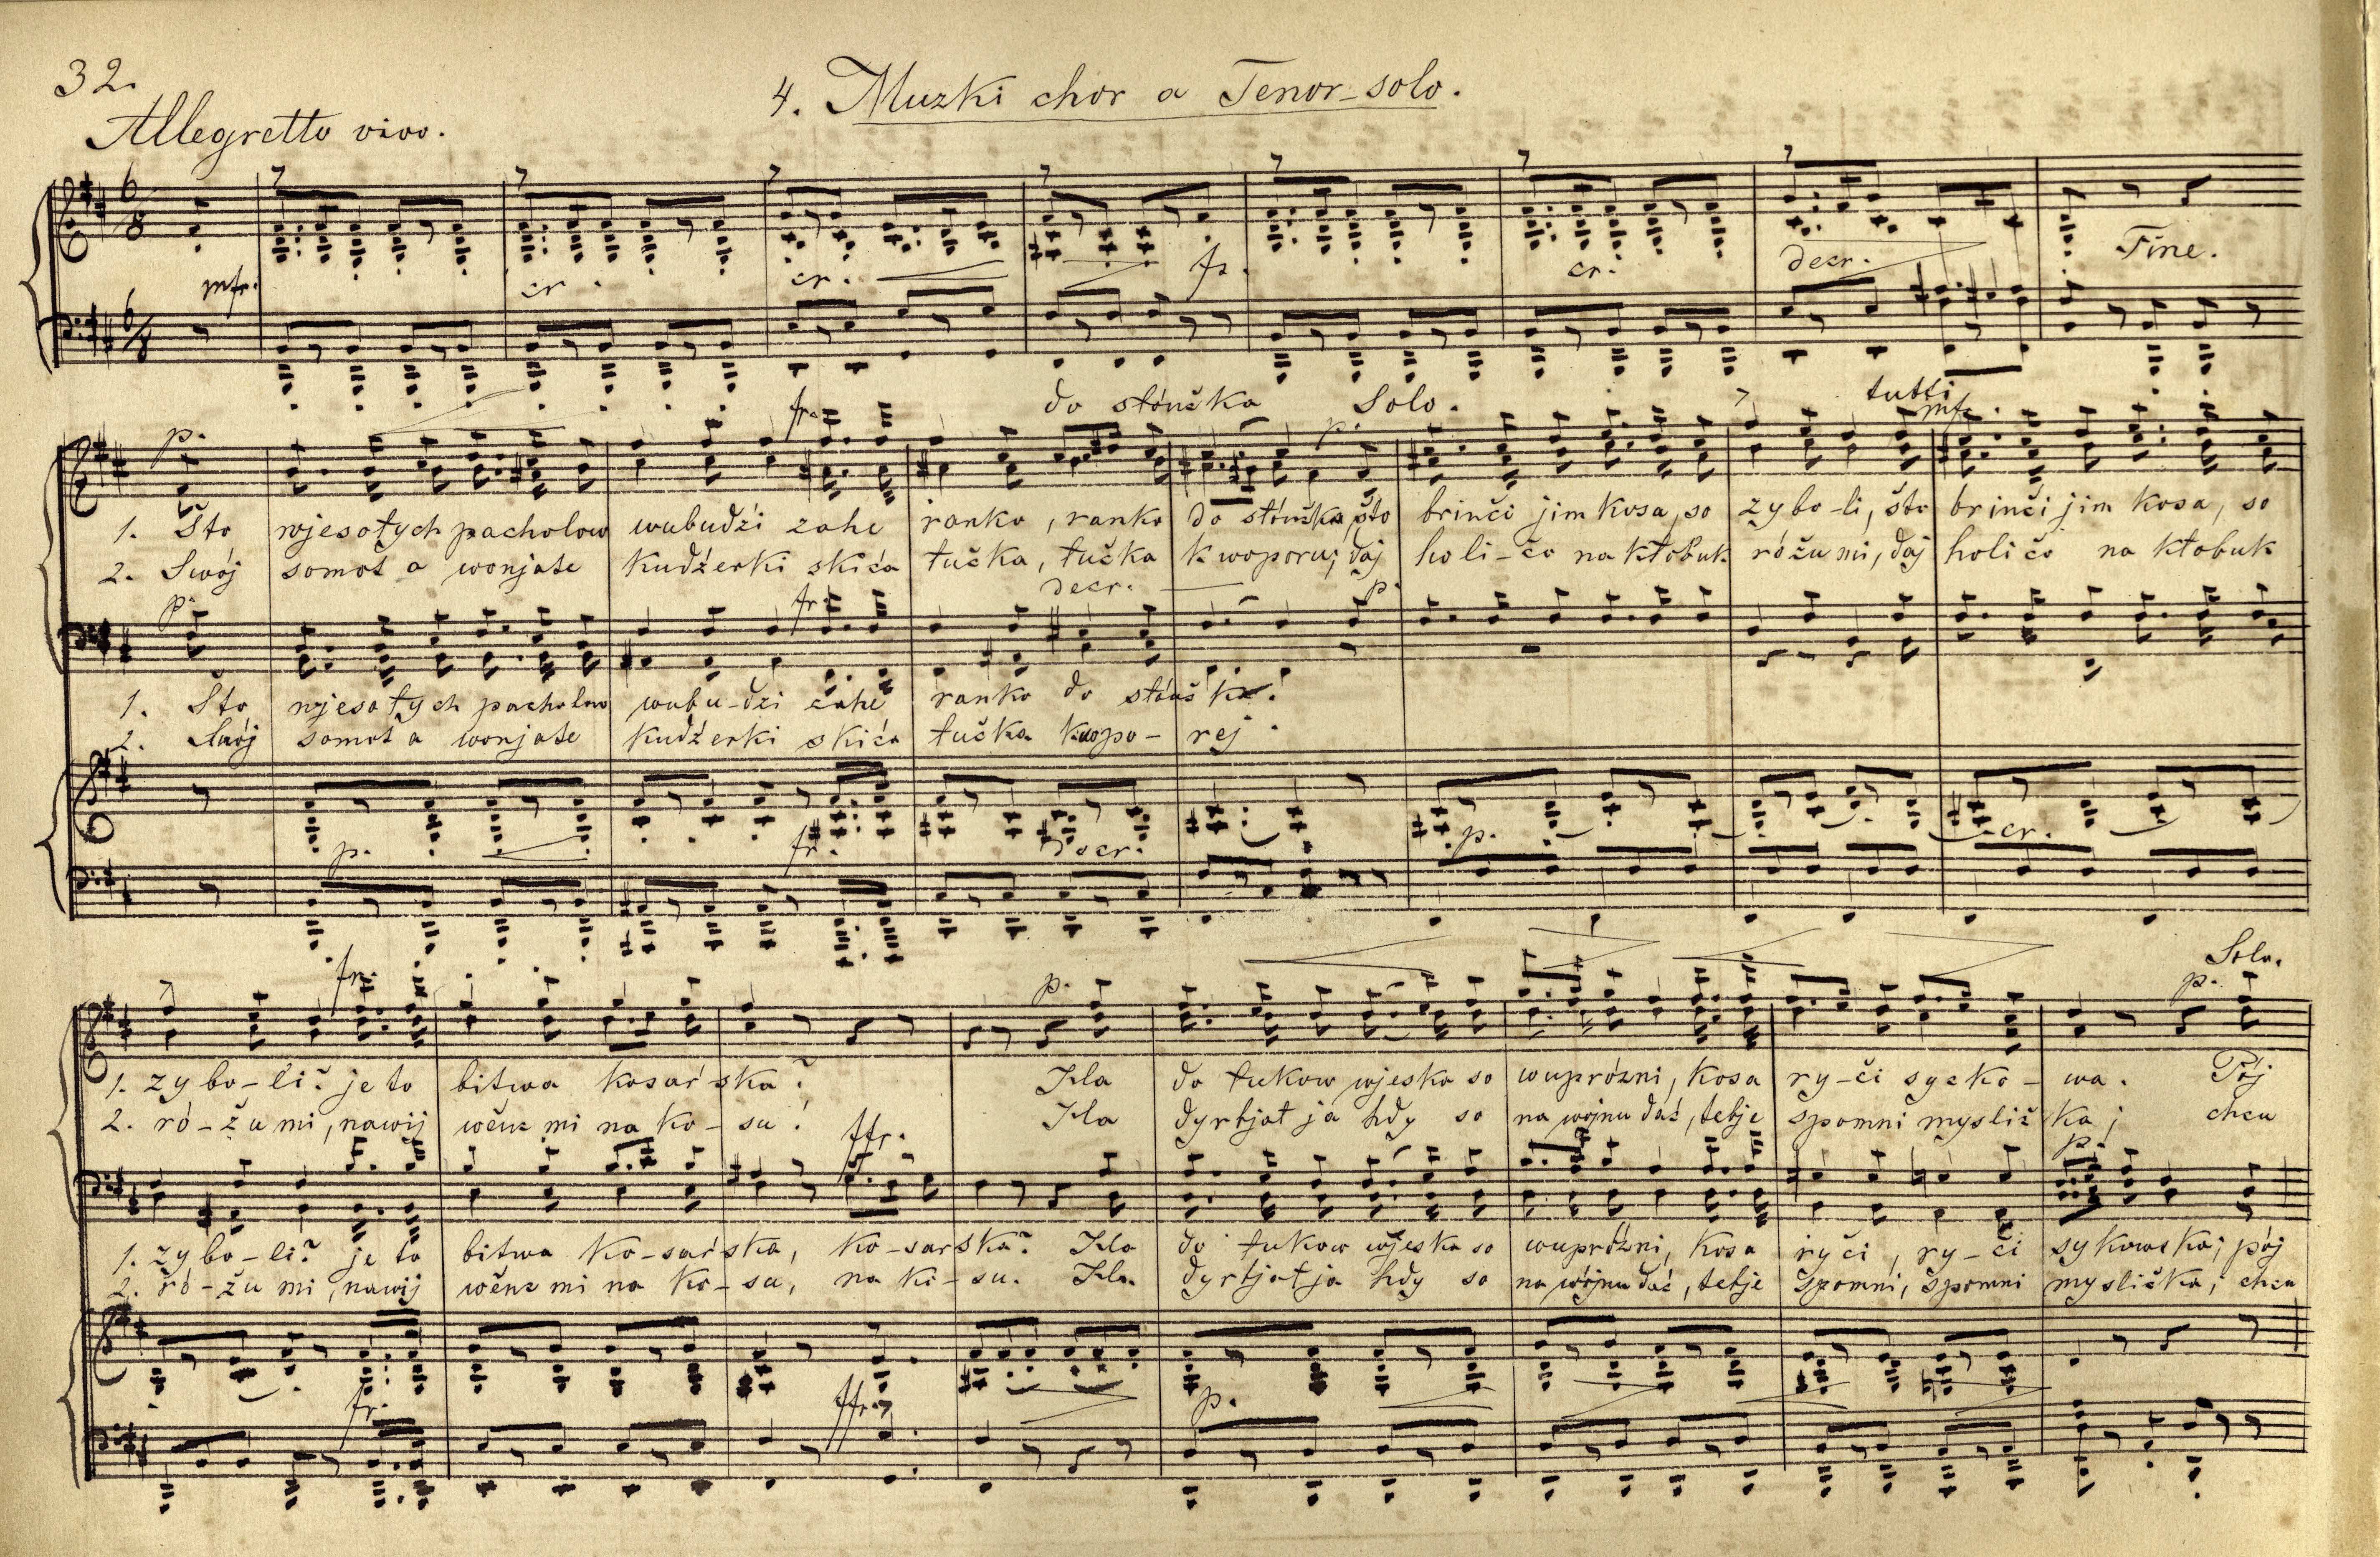 32.
4. Muzki chor a Tenor-solo.
Allegretto vivo.
mfr. cr. cr. fr. cr. decr. Fine.
p. fr. do słónčka Solo. p. tutti mfr.
1. Što wjesołych pacholow wubudźi zahe ranko, ranko do słónčka, što brinči jim kosa, so zybo-li, što brinči jim kosa, so
2. Swój somot a wonjate kudźerki skića łučka, łučka k woporu; daj holi-čo na kłobuk róžu mi, daj holičo na kłobuk
p. fr. decr. p.
1. Što wjesołych pacholow wubu-dźi zahe ranko do słónčka.
2. Swój somot a wonjate kudźerki skića łučka k wopo-rej.
p. fr. decr. p. cr.
fr. p. Solo. p.
1. zybo-li? je to bitwa kosaŕ-ska? Kla do łukow wjeska so wuprózni, kosa ry-či sycko-wa. Pój
2. ró-žu mi, nawij wěnc mi na ko-su! Kla dyrbjał ja hdy so na wójnu dać, tebje spomni myslič-ka; chcu
ffr. p.
1. zybo-li? je to bitwa ko-saŕska, ko-sarska? Kla do łukow wjeska so wuprózni, kosa ryči, ry-či sykowska; pój
2. ró-žu mi, nawij wěnc mi na ko-su, na ki-su. Kla. dyrbjał ja hdy so na wójnu dać, tebje spomni, spomni myslička; chcu
fr. ffr. p.